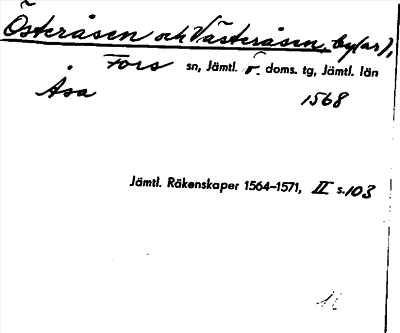 Österåsen och Västeråsen, by(ar),
Fors sn, Jämtl. ö. doms. tg, Jämtl. län
Åsa 1568
Jämtl. Räkenskaper 1564–1571, II s. 103